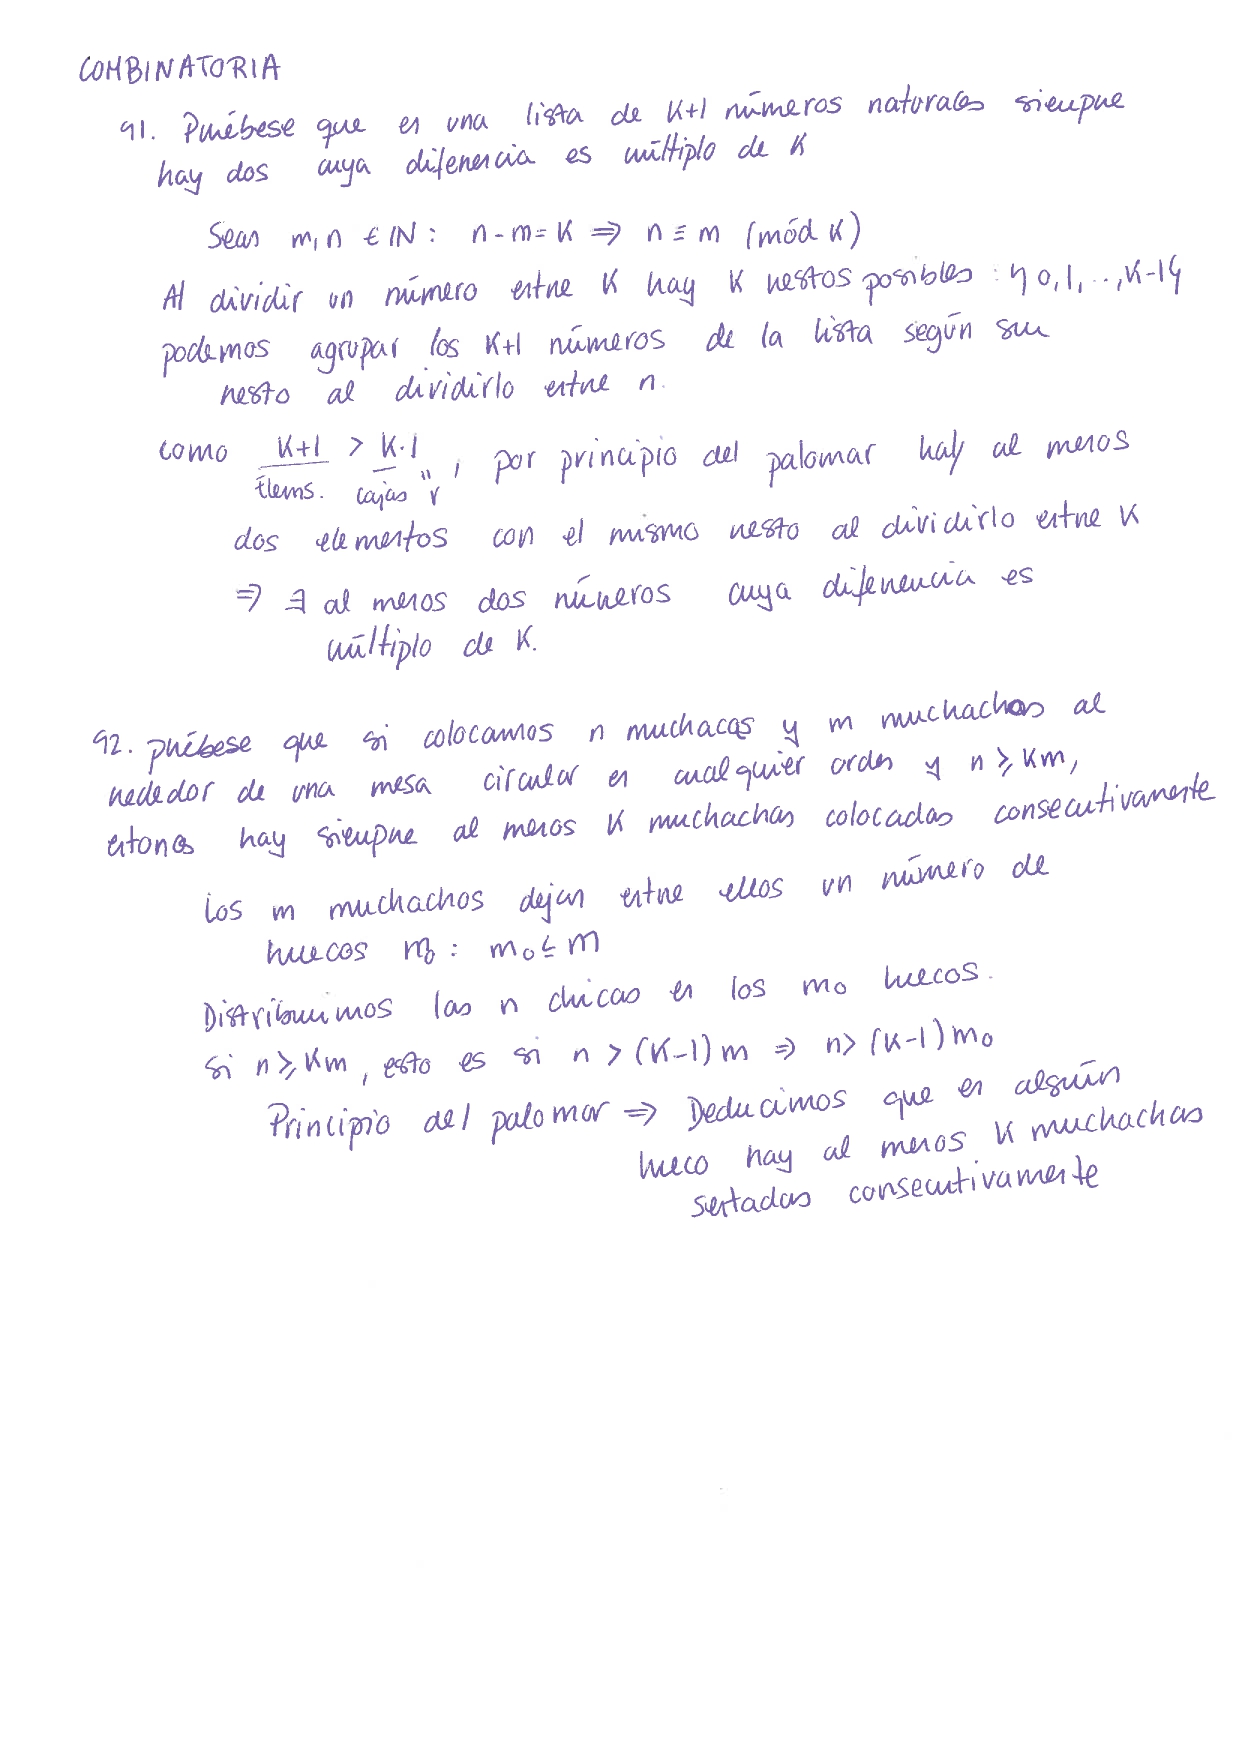 COMBINATORIA
91. Pruébese que en una lista de K+1 números naturales siempre
hay dos cuya diferencia es múltiplo de K
Sean m, n ∈ IN : n - m = K ⇒ n ≡ m (mód K)
Al dividir un número entre K hay K restos posibles : {0, 1, ..., K-1}
podemos agrupar los K+1 números de la lista según su
resto al dividirlo entre n.
como K+1 > K·1, por principio del palomar hay al menos
elems. cajas "r"
dos elementos con el mismo resto al dividirlo entre K
⇒ ∃ al menos dos números cuya diferencia es
múltiplo de K.
92. pruébese que si colocamos n muchacas y m muchachos al
rededor de una mesa circular en cualquier orden y n ≥ Km,
entonces hay siempre al menos K muchachas colocadas consecutivamente
Los m muchachos dejan entre ellos un número de
huecos m₀ : m₀ ≤ m
Distribuimos las n chicas en los m₀ huecos.
si n ≥ Km, esto es si n > (K-1) m ⇒ n > (K-1) m₀
Principio del palomar ⇒ Deducimos que en algún
hueco hay al menos K muchachas
sentadas consecutivamente